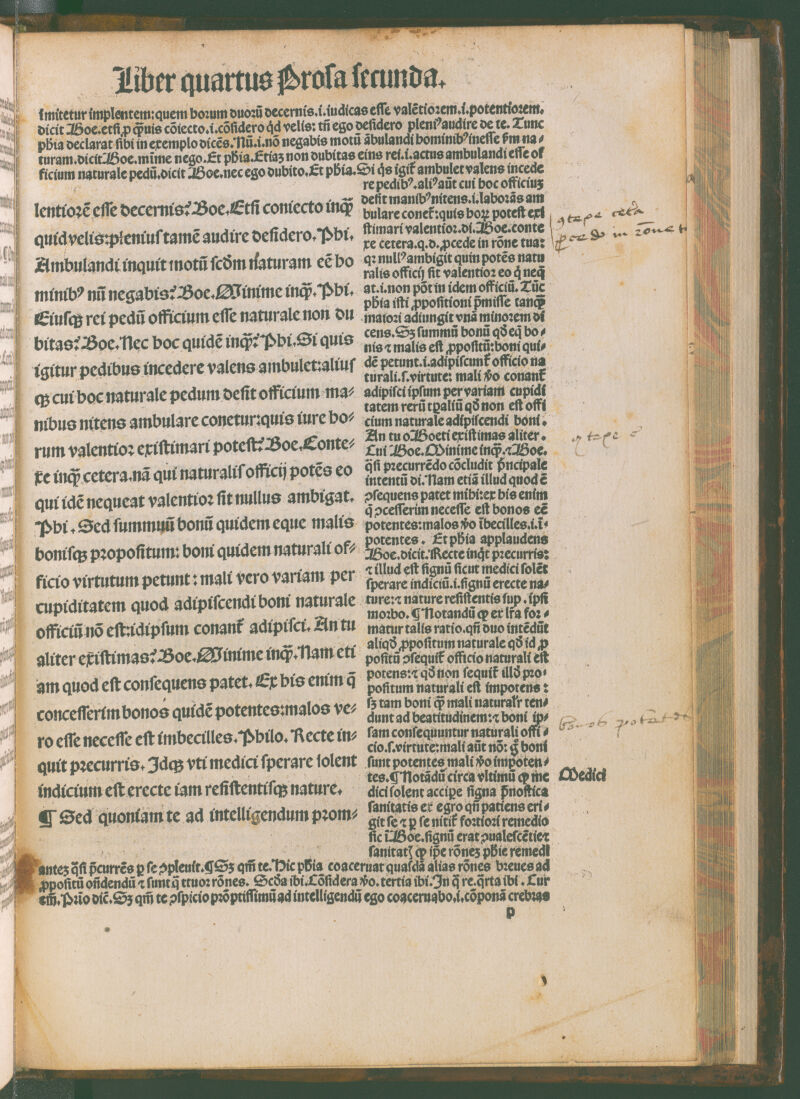 Liber quartus Prosa secunda.
imitetur implentem: quem horum duorū decernis.i.iudicas esse valētiorem.i.potentiorem.
dicit Boe.etsi ꝓ q̄uis cōiecto.i.cōsidero qd velis: tn̄ ego desidero pleniꝰ audire de te. Tunc
phia declarat sibi in exemplo dicēs. Nū.i.nō negabis motū ābulandi hominibꝰ inesse ẜm na⸗
turam. dicit Boe. mīme nego. Et phia. Etiaꝫ non dubitas eius rei.i.actus ambulandi esse of
ficium naturale pedū. dicit Boe. nec ego dubito. Et phia. Si qs igit̄ ambulet valens incede
re pedibꝰ. aliꝰ aūt cui hoc officiuꝫ
desit manibꝰ nitens.i.laborās am
bulare conet̄: quis hoꝝ potest exi
stimari valentior. di. Boe. conte
xe cetera.q.d. ꝓcede in rōne tua:
qꝛ nullꝰ ambigit quin potēs natu
ralis officij sit valentior eo q neq̄
at.i.non pōt in idem officiū. Tūc
phia isti ꝓpositioni p̄misse tanq̄
maiori adiungit vnā minorem di
cens. Sꝫ summū bonū qd eq̄ bo⸗
nis ⁊ malis est ꝓpositū: boni qui⸗
dē petunt.i.adipiscunt̄ officio na
turali.s.virtute: mali vo conant̄
adipisci ipsum per variam cupidi
tatem rerū tꝑaliū qd non est offi
cium naturale adipiscendi boni.
An tu o Boeti existimas aliter.
Cui Boe. Minime inq̄. ⁊ Boe.
q̄si precurrēdo cōcludit p̄ncipale
intentū di. Nam etiā illud quod ē
ꝯsequens patet mihi: ex his enim
q̄ ꝯcesserim necesse est bonos eē
potentes: malos vo ībecilles.i.ī⸗
potentes. Et phia applaudens
Boe. dicit. Recte inqt precurris:
⁊ illud est signū sicut medici solēt
sperare indiciū.i.signū erecte na⸗
ture: ⁊ nature resistentis sup. ipsi
morbo. ¶ Notandū ꝙ ex lr̄a for⸗
matur talis ratio. qn̄ duo intēdūt
aliqd ꝓpositum naturale qd id ꝓ
positū ꝯsequit̄ officio naturali est
potens: ⁊ qd non sequit̄ illd pro⸗
positum naturali est impotens:
sꝫ tam boni q̄ mali naturalr̄ ten⸗
dunt ad beatitudinem: ⁊ boni ip⸗
sam consequuntur naturali offi⸗
cio.s.virtute: mali aūt nō: g̊ boni
sunt potentes mali vo impoten⸗
tes. ¶ Notādū circa vltimū ꝙ me
dici solent accipe signa p̄nostica
sanitatis ex egro qn̄ patiens eri⸗
git se ⁊ ꝑ se nitit̄ fortiori remedio
sic ī Boe. signū erat ꝯualescētie ⁊
sanitatꝭ ꝙ ipe rōneꝫ phie remedi
lentiorē esse decernis? Boe. Etsi coniecto inq̄
quid velis: pleniꝰ tamē audire desidero. Phi.
Ambulandi inquit motū scdm naturam eē ho
minibꝰ nū negabis? Boe. Minime inq̄. Phi.
Eiusqꝫ rei pedū officium esse naturale non du
bitas? Boe. Nec hoc quidē inq̄? Phi. Si quis
igitur pedibus incedere valens ambulet: alius
qꝫ cui hoc naturale pedum desit officium ma⸗
nibus nitens ambulare conetur: quis iure ho⸗
rum valentior existimari potest? Boe. Conte⸗
xe inq̄ cetera. nā qui naturalis officij potēs eo
qui idē nequeat valentior sit nullus ambigat.
Phi. Sed summuū bonū quidem eque malis
bonisqꝫ propositum: boni quidem naturali of⸗
ficio virtutum petunt: mali vero variam per
cupiditatem quod adipiscendi boni naturale
officiū nō est: idipsum conant̄ adipisci. An tu
aliter existimas? Boe. Minime inq̄. Nam eti
am quod est consequens patet. Ex his enim q̄
concesserim bonos quidē potentes: malos ve⸗
ro esse necesse est imbecilles. Philo. Recte in⸗
quit precurris. Idqꝫ vti medici sperare solent
indicium est erecte iam resistentisqꝫ nature.
¶ Sed quoniam te ad intelligendum prom⸗
Medici
anteꝫ q̄si p̄currēs ꝑ se ꝯpleuit. ¶ Sꝫ qm̄ te. Hic phia coaceruat quasdā alias rōnes breues ad
ꝓpositū on̄dendū ⁊ sunt q̄ttuor rōnes. Scda ibi. Cōsidera vo. tertia ibi. In q̄ re. q̄rta ibi. Cur
em̄. Prīo dic̄. Sꝫ qm̄ te ꝯspicio prōptissimū ad intelligendū ego coaceruabo.i.cōponā crebras
p